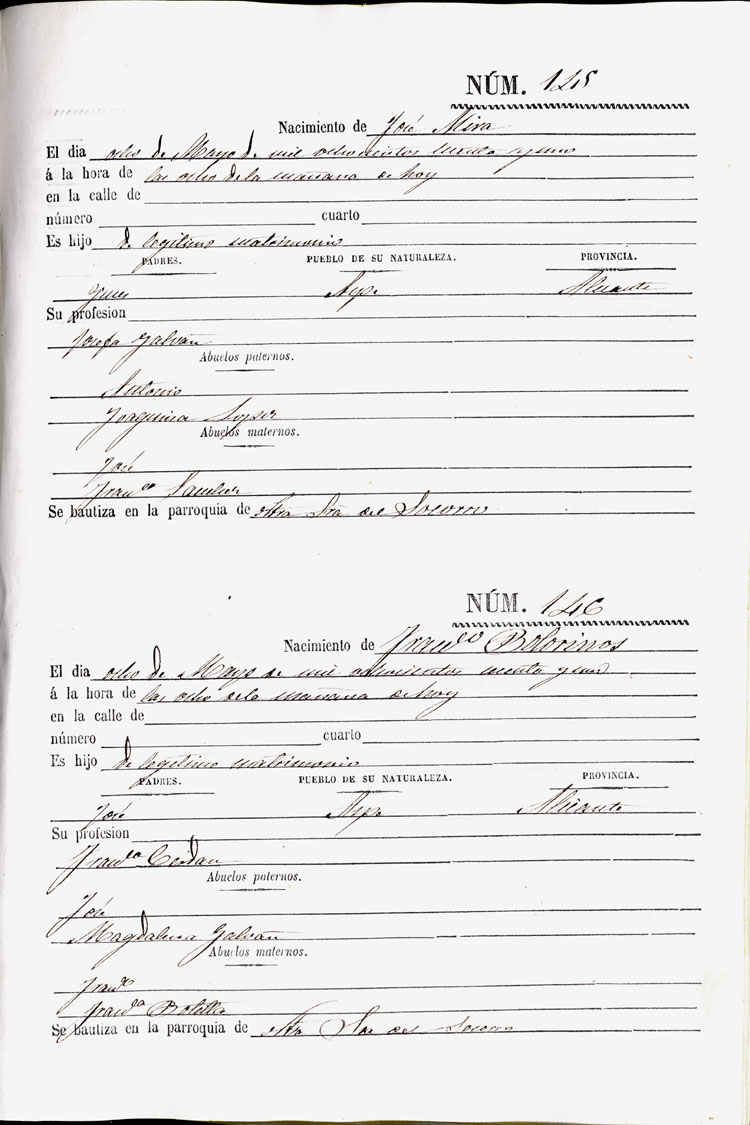 NÚM. 145
Nacimiento de José Mira
El dia ocho de Mayo de mil ochocientos sesenta y uno
á la hora de las ocho de la mañana de hoy
en la calle de
número cuarto
Es hijo de legitimo matrimonio
PADRES. PUEBLO DE SU NATURALEZA. PROVINCIA.
Gines Aspe Alicante
Su profesion
Josefa Galvañ
Abuelos paternos.
Antonio
Joaquina Lopez
Abuelos maternos.
José
Fran.ca Sanchez
Se bautiza en la parroquia de Ntra Sra del Socorro
NÚM. 146
Nacimiento de Fran.co Bolorinos
El dia ocho de Mayo de mil ochocientos sesenta y uno
á la hora de las ocho de la mañana de hoy
en la calle de
número cuarto
Es hijo de legitimo matrimonio
PADRES. PUEBLO DE SU NATURALEZA. PROVINCIA.
José Aspe Alicante
Su profesion
Fran.ca Cerdan
Abuelos paternos.
José
Magdalena Galvañ
Abuelos maternos.
Fran.co
Fran.ca Botella
Se bautiza en la parroquia de Ntra Sra del Socorro